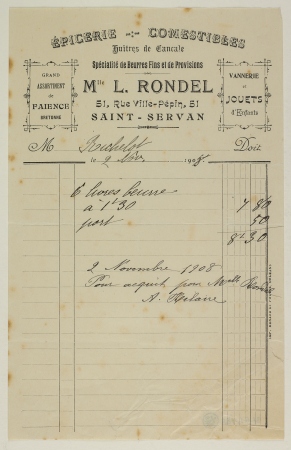 ÉPICERIE COMESTIBLES
Huîtres de Cancale
Spécialité de Beurres Fins et de Provisions
GRAND
ASSORTIMENT
de
FAIENCE
BRETONNE
Mlle L. RONDEL
51, Rue Ville-Pépin, 51
SAINT-SERVAN
VANNERIE
et
JOUETS
d'Enfants
M Richelot Doit
le 2 Nov 1908
6 livres beurre
à 1f 30 7 80
port 50
8f 30
2 Novembre 1908
Pour acquit pour Melle Rondel
A. Hilaire